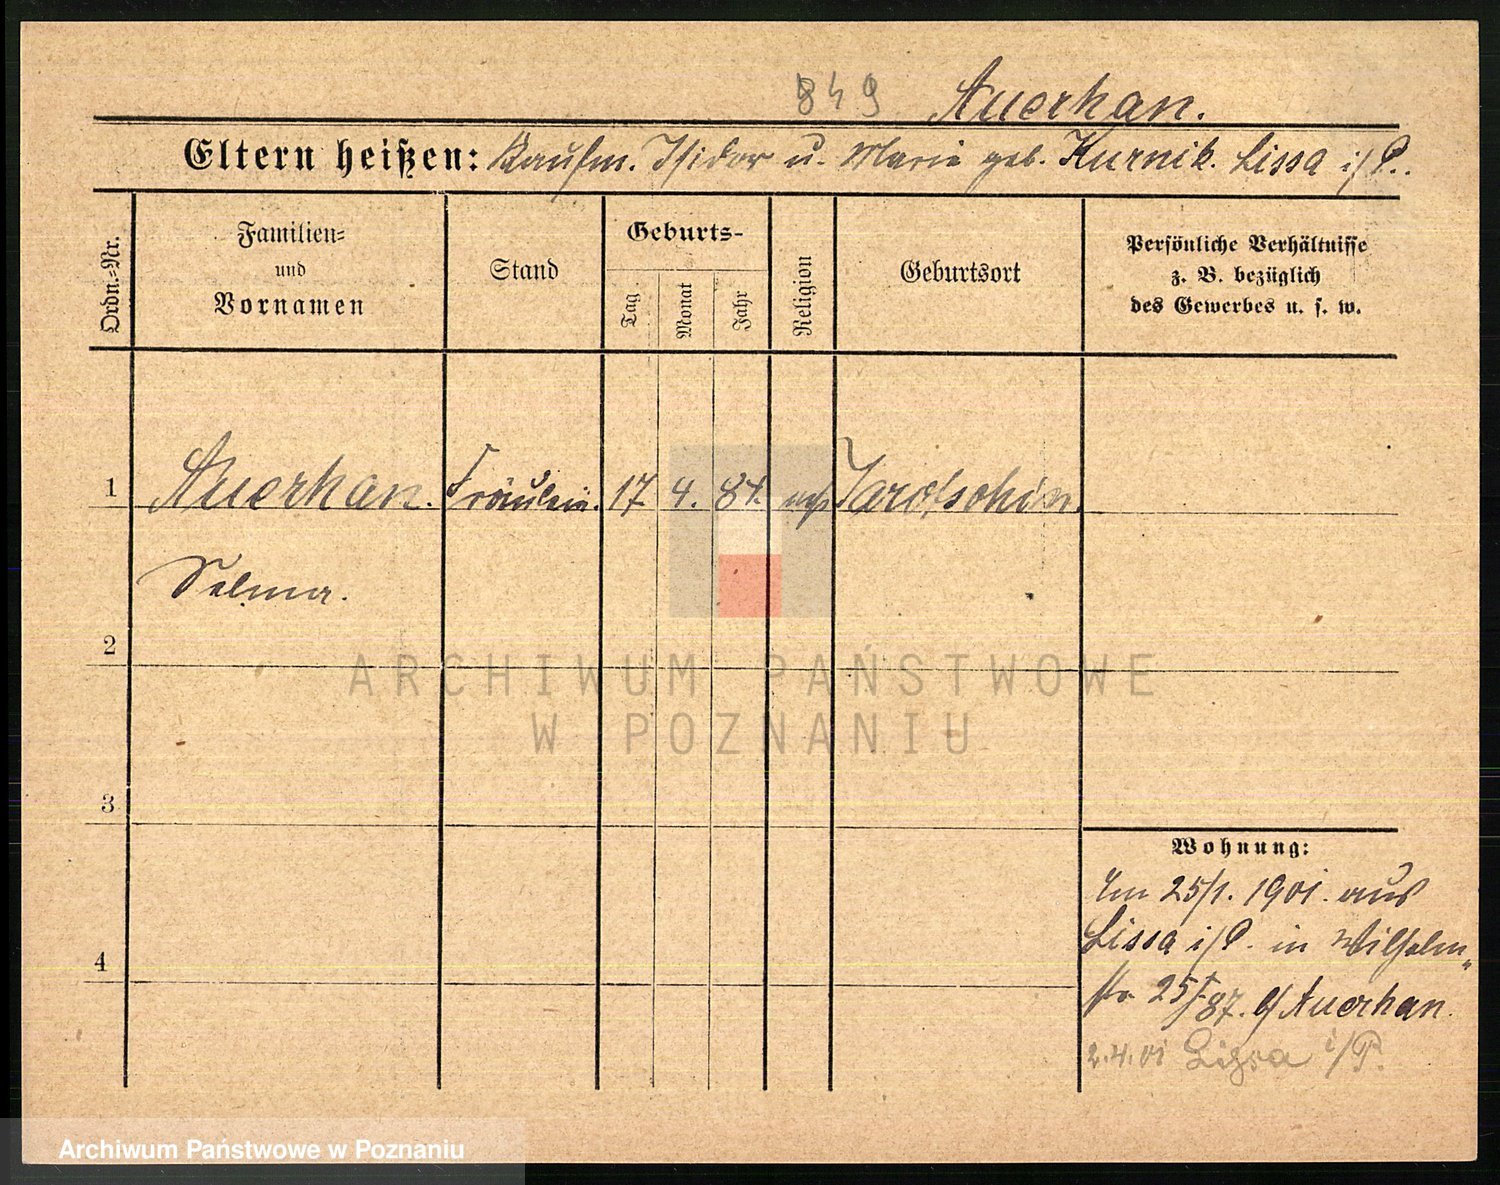 849 Auerhan.
Eltern heißen: Kaufm. Isidor u. Marie geb. Kurnik. Lissa i/P.
Ordn.=Nr.
Familien=
und
Vornamen
Stand
Geburts-
Tag
Monat
Jahr
Religion
Geburtsort
Persönliche Verhältnisse
z. B. bezüglich
des Gewerbes u. s. w.
1 Auerhan. Fräulein. 17 4. 84. Jarotschin.
Selma.
2
ARCHIWUM PAŃSTWOWE
W POZNANIU
3
Wohnung:
Am 25/1. 1901. aus
Lissa i/P. in Wilhelm„
str. 25 Auerhan.
4
2.4.01 Lissa i/P.
Archiwum Państwowe w Poznaniu